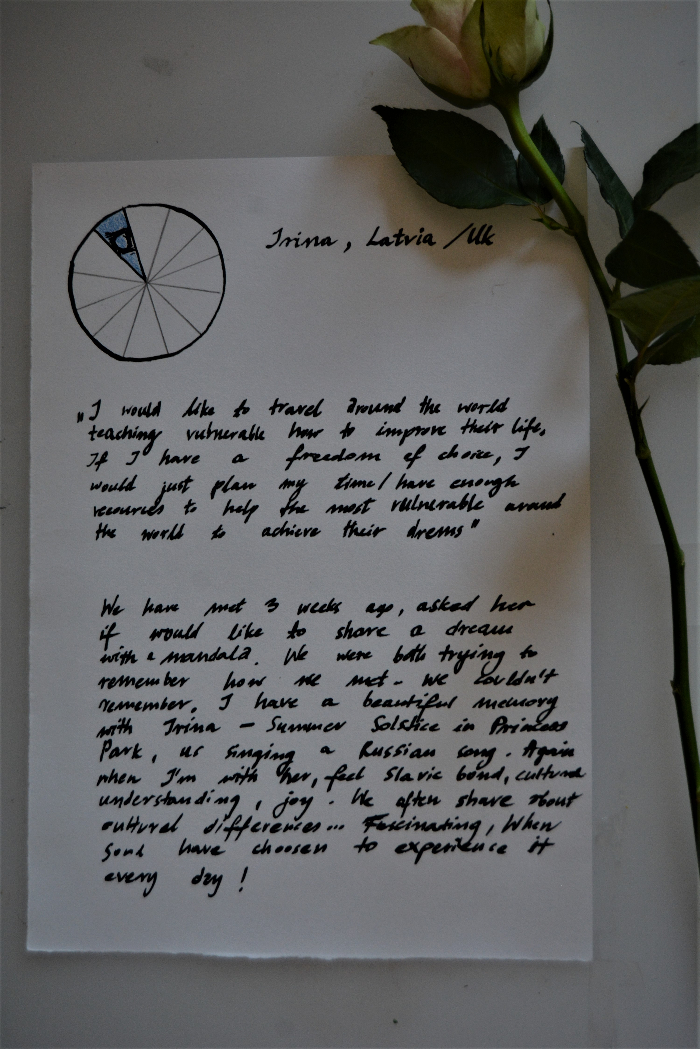 Irina, Latvia /UK
„I would like to travel around the world
teaching vulnerable how to improve their life.
If I have a freedom of choice, I
would just plan my time/have enough
resources to help the most vulnerable around
the world to achieve their drems"
We have met 3 weeks ago, asked her
if would like to share a dream
with a mandala. We were both trying to
remember how we met - we couldn't
remember. I have a beautiful memory
with Irina - Summer Solstice in Princess
Park, us singing a Russian song. Again
when I'm with her, feel Slavic bond, cultural
understanding, joy. We often share about
cultural differences... Fascinating, when
soul have choosen to experience it
every day!